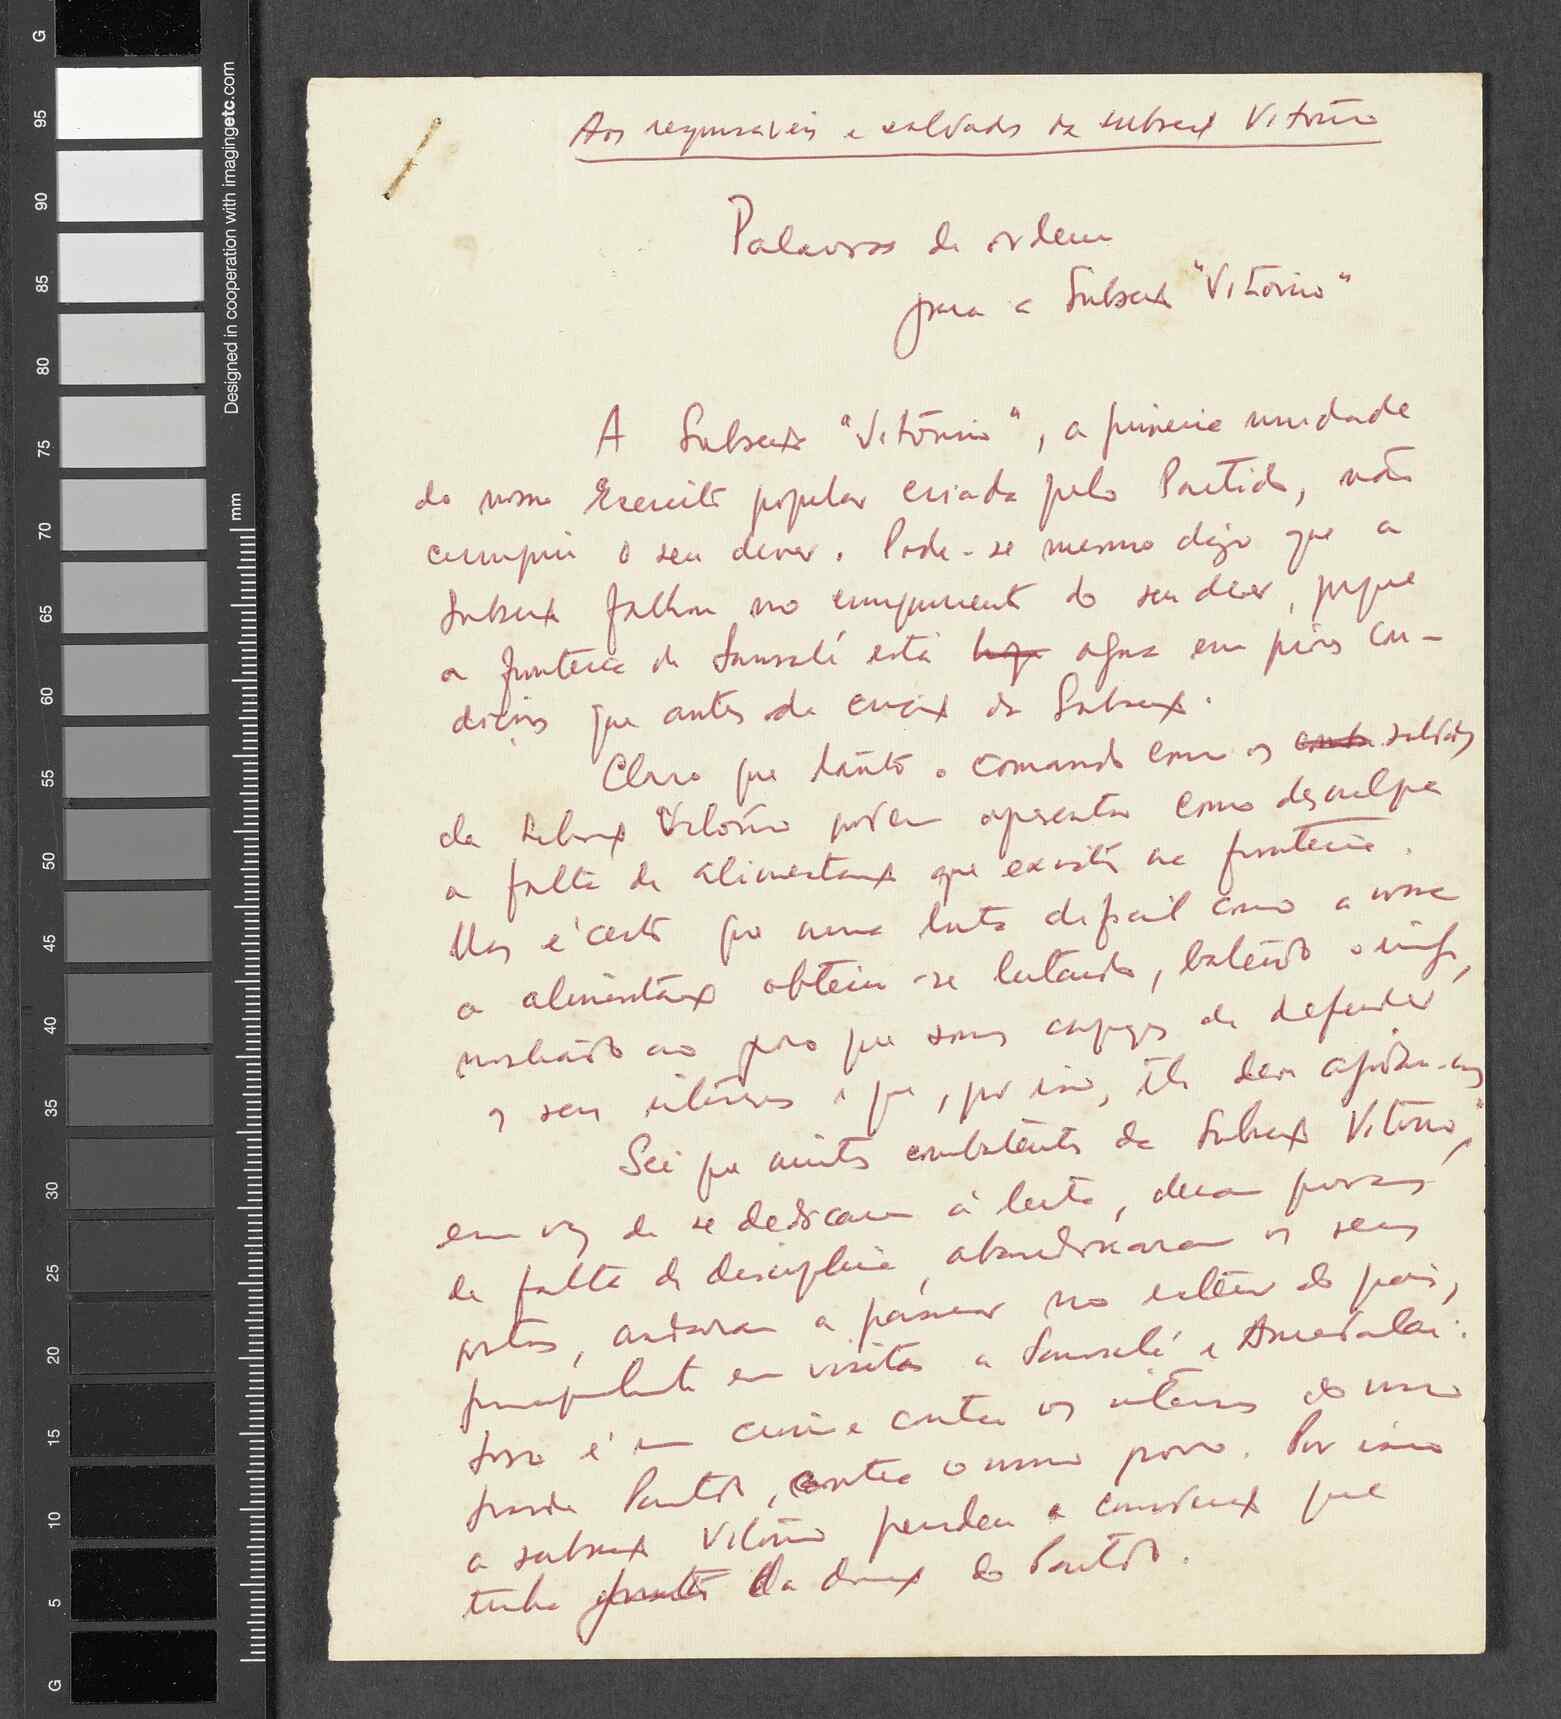 Aos responsáveis e soldados da subsecç Vitória
Palavras de ordem
para a Subsecç "Vitória"
A Subsecç "Vitória", a primeira unidade
do nosso Exercito popular criada pelo Partido, não
cumpriu o seu dever. Pode-se mesmo dizer que a
Subsecç falhou no cumprimento do seu dever, porque
a fronteira de Sansalé está agora em piores con-
dições que antes da criaç da Subsecç.
Claro que tanto o comando como os soldados
da Subsecç Vitória podem apresentar como desculpa
a falta de alimentaç que existe na fronteira.
Mas é certo que numa luta dificil como a nossa
a alimentaç obtem-se lutando, batendo o inimigo,
mostrando ao povo que somos capazes de defender
os seus interesses e que, por isso, ele deve ajudar-nos
Sei que muitos combatentes da Subsecç Vitória,
em vez de se dedicarem à luta, deram provas
de falta de disciplina, abandonaram os seus
postos, andaram a passear no interior do país,
principalmente em visitas a Sansalé e
Isso é um crime contra os interesses do nosso
grande Partido, contra o nosso povo. Por isso
a subsecç Vitória perdeu a confiança que
tinha da direcç do Partido.
G
95
90
85
80
75
70
65
60
55
50
45
40
35
30
25
20
15
10
5
G
mm
Designed in cooperation with imagingetc.com